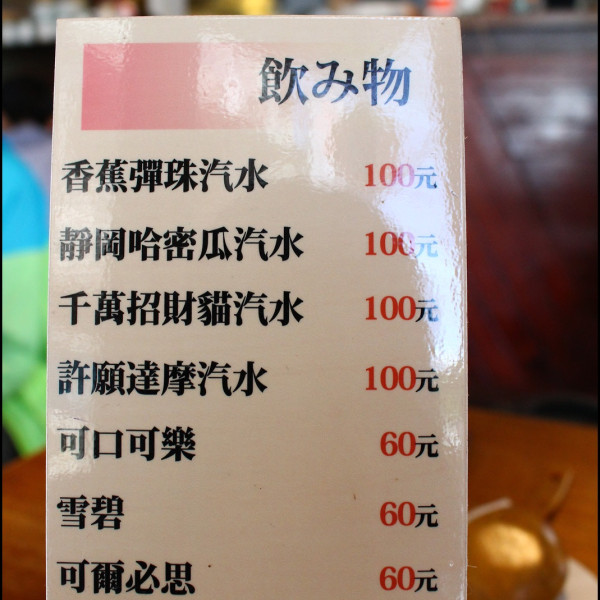 飲み物
香蕉彈珠汽水 100元
靜岡哈密瓜汽水 100元
千萬招財貓汽水 100元
許願達摩汽水 100元
可口可樂 60元
雪碧 60元
可爾必思 60元